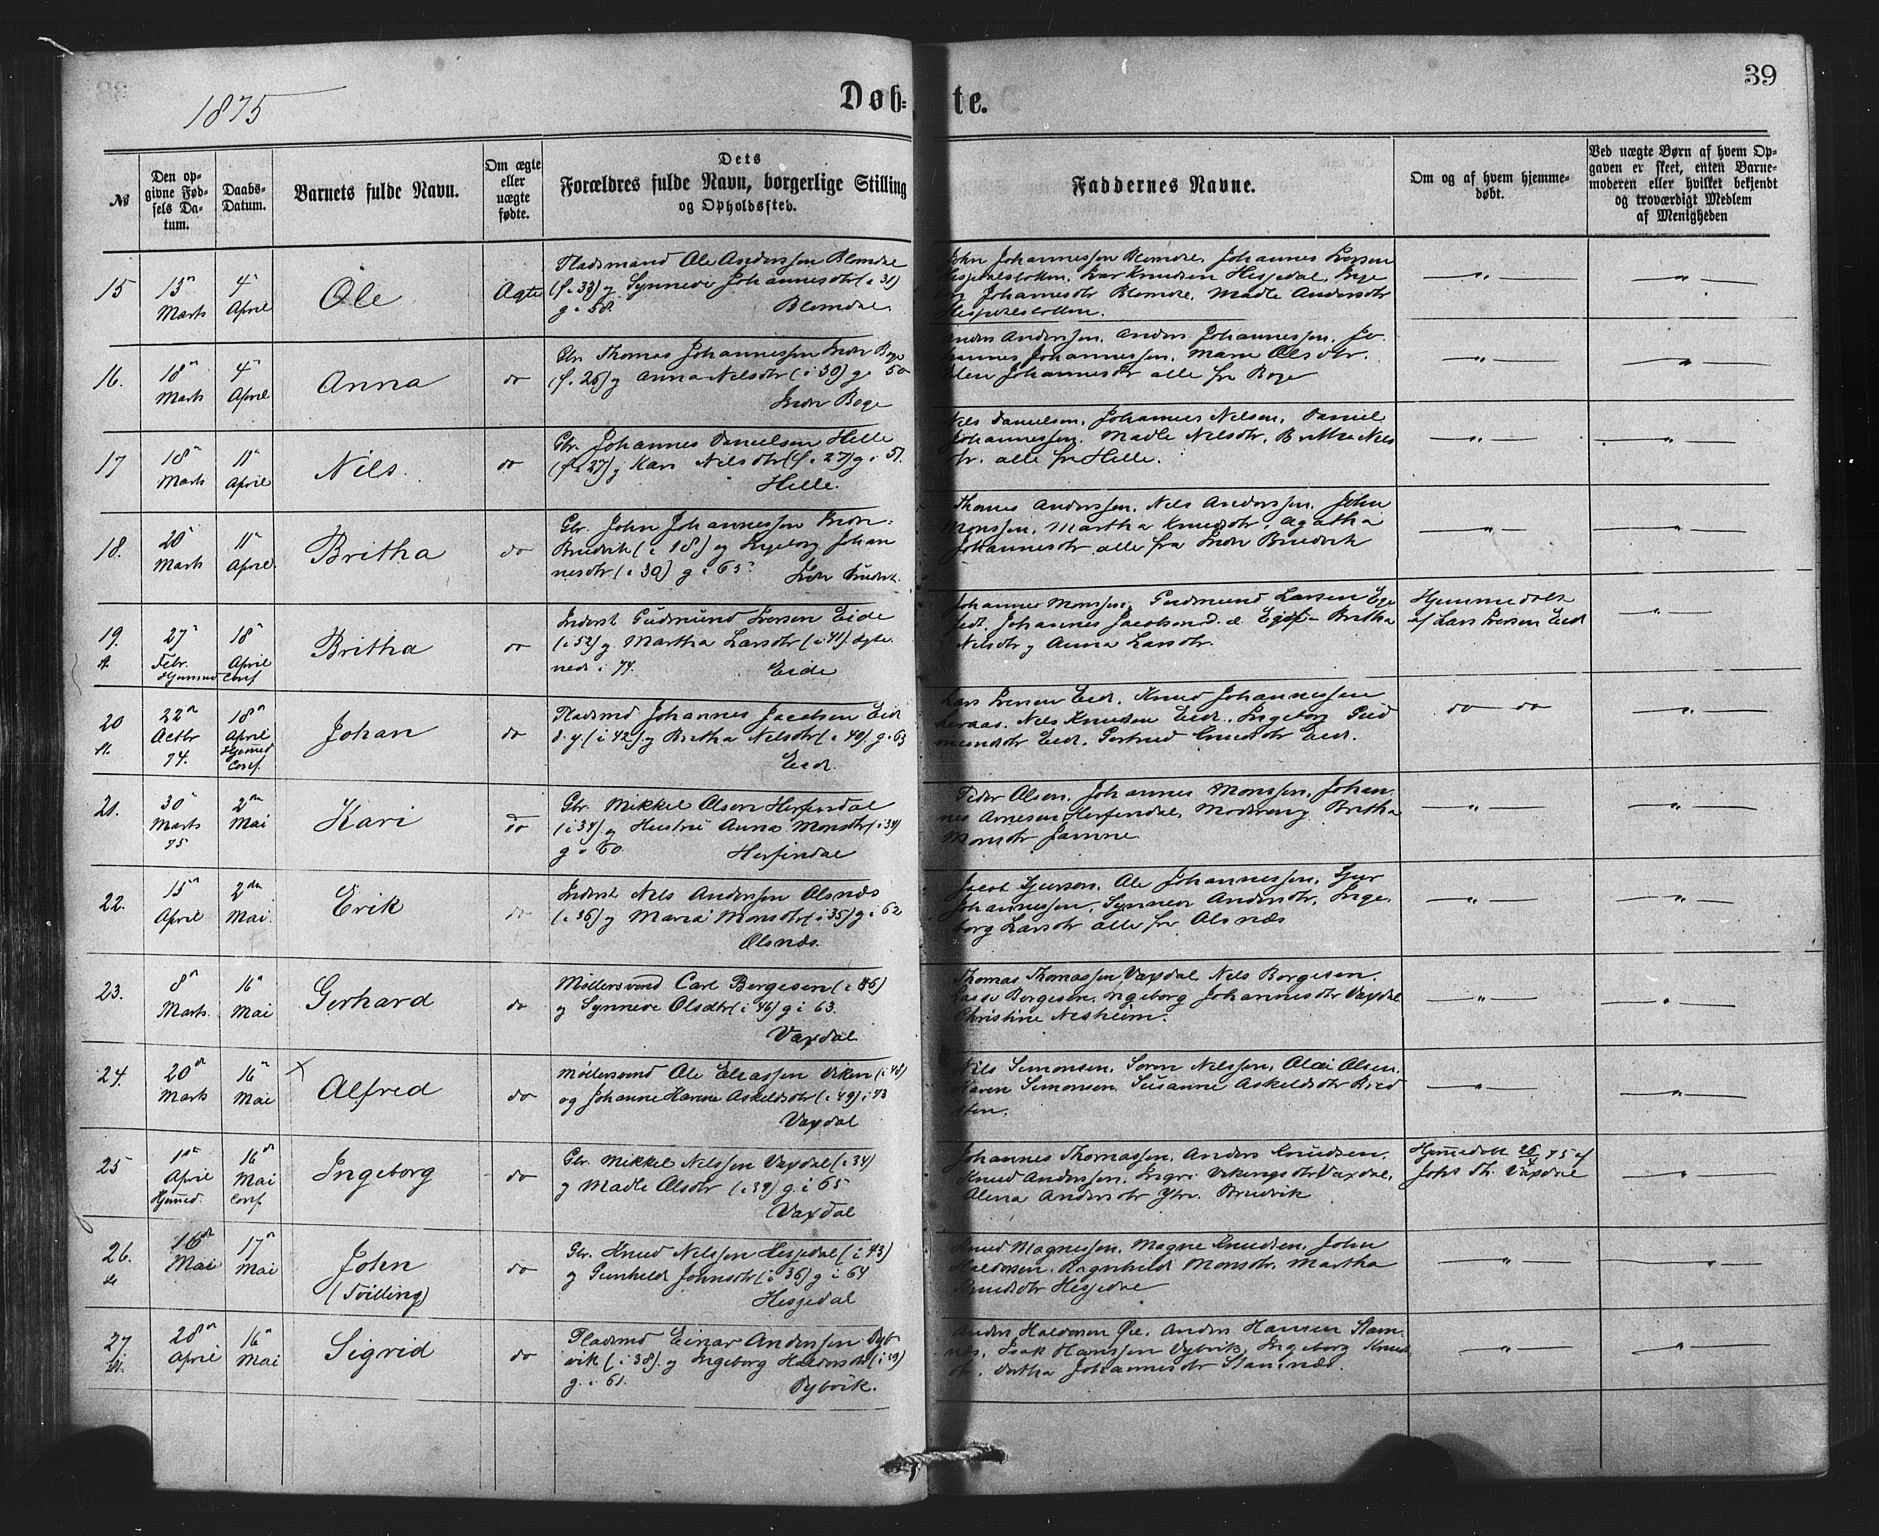 39
1875
Døb-
te.
№
Den op-
givne Fød-
sels Da-
tum.
Daabs-
Datum.
Barnets fulde Navn.
Om ægte
eller
uægte
fødte.
Dets
Forældres fulde Navn, borgerlige Stilling
og Opholdssted.
Faddernes Navne.
Om og af hvem hjemme-
døbt.
Ved uægte Børn af hvem Op-
gaven er skeet, enten Barne-
moderen eller hvilket bekjendt
og troværdigt Medlem
af Menigheden
15
Marts
4
April
Ole
Ægte
Pladsmand Ole Anderssen Blomdal
(f. 33) og Synneve Johannesdtr (i 31)
g i 58.
Blomdal
John Johannessen Blomdal, Johannes Iversen
Ivar Knudsen Hesjedal, Inge
borg Johannesdtr Blomdal, Madle Andersdtr
16.
18
Marts
4
April
Anna
do
Gbr. Thomas Johannessen Indr Boge
(f. 26) og Anna Nilsdtr (i 30) g i 50
Indr Boge
Anders Anderssen, Anders Johannessen, Jo
hannes Johannessen, Mari Olsdtr.
Johannesdtr alle fra Boge
17
18
Marts
11
April
Nils.
do
Gbr. Johannes Danielsen Helle
(f. 27) og Kari Nilsdtr (f. 27) g i 51.
Helle.
Nils Danielsen, Johannes Nilsen, Daniel
Johannessen. Madle Nilsdtr, Britha Nils
dtr. alle fra Helle.
18.
20
Marts
11
April
Britha
do
Gbr. John Johannessen Indr
Bruvik (i 18) og Ingeborg Johan
nesdtr (i 30) g i 65
Indr Bruvik.
Thomas Anderssen, Nils Anderssen, John
Monssen, Martha Knudsdtr, Agatha
Johannesdtr alle fra Indr Bruvik
19.
27
Febr.
18
April
Conf.
Britha
do
Inderst Gudmund Iversen Eide
(i 52) og Martha Larsdtr (i 41)
i 74.
Eide
Johannes Monssen, Gudmund Larsen
Johannes Jacobsen Britha
Nilsdtr og Anna Larsdtr.
Hjemmedøbt
af Lars Iversen Eide
20
22
Octbr
74.
18
April
Conf.
Johan
do
Pladsmd Johannes Jacobsen Eide
d. y. (i 42) og Britha Nilsdtr (i 40) g i 63
Eide.
Lars Iversen Eide, Knud Johannessen
Nils Knudsen Eide, Ingeborg Gud
mundsdtr Eide, Gertrud Knudsdtr Eide.
do do
21.
30
Marts
75
2den
Mai
Kari
do
Gbr. Mikkel Olsen Herfindal
(i 34) og Hustru Anna Monsdtr (i 34)
g i 60.
Herfindal
Peder Olsen, Johannes Monssen, Johan
nes Arnesen Herfindal, Moderen og Britha
Monsdtr Samme
22.
15
April
2den
Mai.
Erik
do
Inderst Nils Anderssen Olsnæs
(i 36) og Maria Monsdtr (i 35) g i 62
Olsnæs.
Jacob Gjursen, Ole Johannessen, Gjur
Johannessen, Synneve Andersdtr, Inge
borg Larsdtr alle fra Olsnæs
23.
8
Marts.
16
Mai
Gerhard
do
Møllersvend Carl Børgesen (i 36)
og Synneve Olsdtr (i 46) g i 63.
Vaxdal
Thomas Thomassen Vaxdal, Nils Børgesen,
Lasse Børgesen, Ingeborg Johannesdtr Vaxdal
Christine Nesheim.
24.
20
Marts
16
Mai
Alfred
do
Møllersvend Ole Eliassen Viken (i 48)
og Johanne Karine Askeldsdtr (i 49) i 73
Vaxdal
Nils Simonsen, Søren Nilssen, Olai Olsen,
Karen Simonsen, Susanne Askeldsdtr
25
11
April
Hjemmed.
16
Mai
Conf.
Ingeborg
do
Gbr. Mikkel Nilssen Vaxdal (i 34)
og Madle Olsdtr (i 39) g i 65
Vaxdal
Johannes Thomassen, Anders Knudsen,
Knud Anderssen, Ingri Vikingsdtr Vaxdal,
Alena Andersdtr Ytr. Bruvik
Hjemmedøbt 26/4 75 af
Johs Th. Vaxdal
26.
16
Mai
17
Mai
John
(Tvilling)
do
Gbr. Knud Nilssen Hesjedal (i 43)
og Gunhild Johnsdtr (i 36) g i 64
Hesjedal
Knud Magnessen, Magne Knudsen, John
Haldorsen, Ragnhild Monsdtr, Martha
Knudsdtr Hesjedal
27.
28
April
16
Mai
Sigrid
do
Pladsmd Einar Anderssen Dyb-
vik (i 38) og Ingeborg Haldorsdtr
g. i 61.
Dybvik.
Anders Haldorsen Øie, Anders Hansen Stam
næs, Isak Hanssen Dybvik, Ingeborg Knuds
dtr, Johannesdtr Stamnæs.